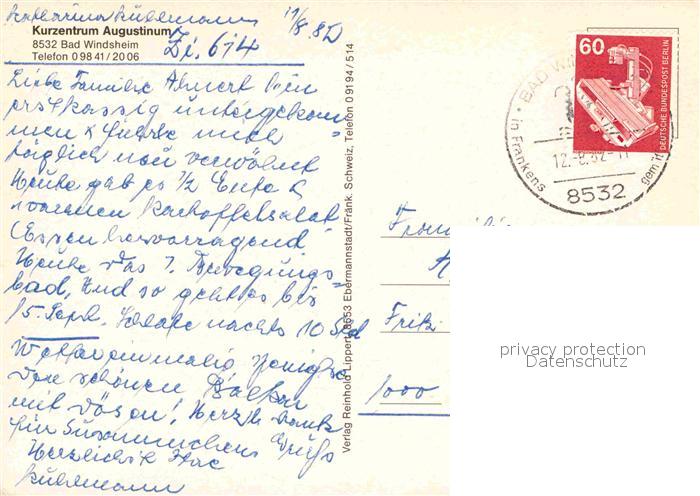 Katharina Kuhlmann 11/8. 82
Kurzentrum Augustinum
8532 Bad Windsheim
Telefon 0 98 41 / 20 06
Zi. 614
Liebe Familie Ahnert bin
erstklassig untergekom-
men & fühle mich
täglich neu verwöhnt
Heute gab es 1/2 Ente &
warmen Kartoffelsalat
Essen hervorragend
Heute das 7. Bewegungs-
bad, und so geht es bis
5. Sept. Schlafe nachts 10 Std
Wetter einmalig
den schönen Balkon
mit dösen! Herzl. Dank
für
Herzlichst
Kuhlmann
Verlag Reinhold Lippert, 8553 Ebermannstadt/Fränk. Schweiz, Telefon 0 91 94 / 5 14
60
DEUTSCHE BUNDESPOST BERLIN
BAD
in Frankens
12.-8.82
8532
Fritz
1000
privacy protection
Datenschutz